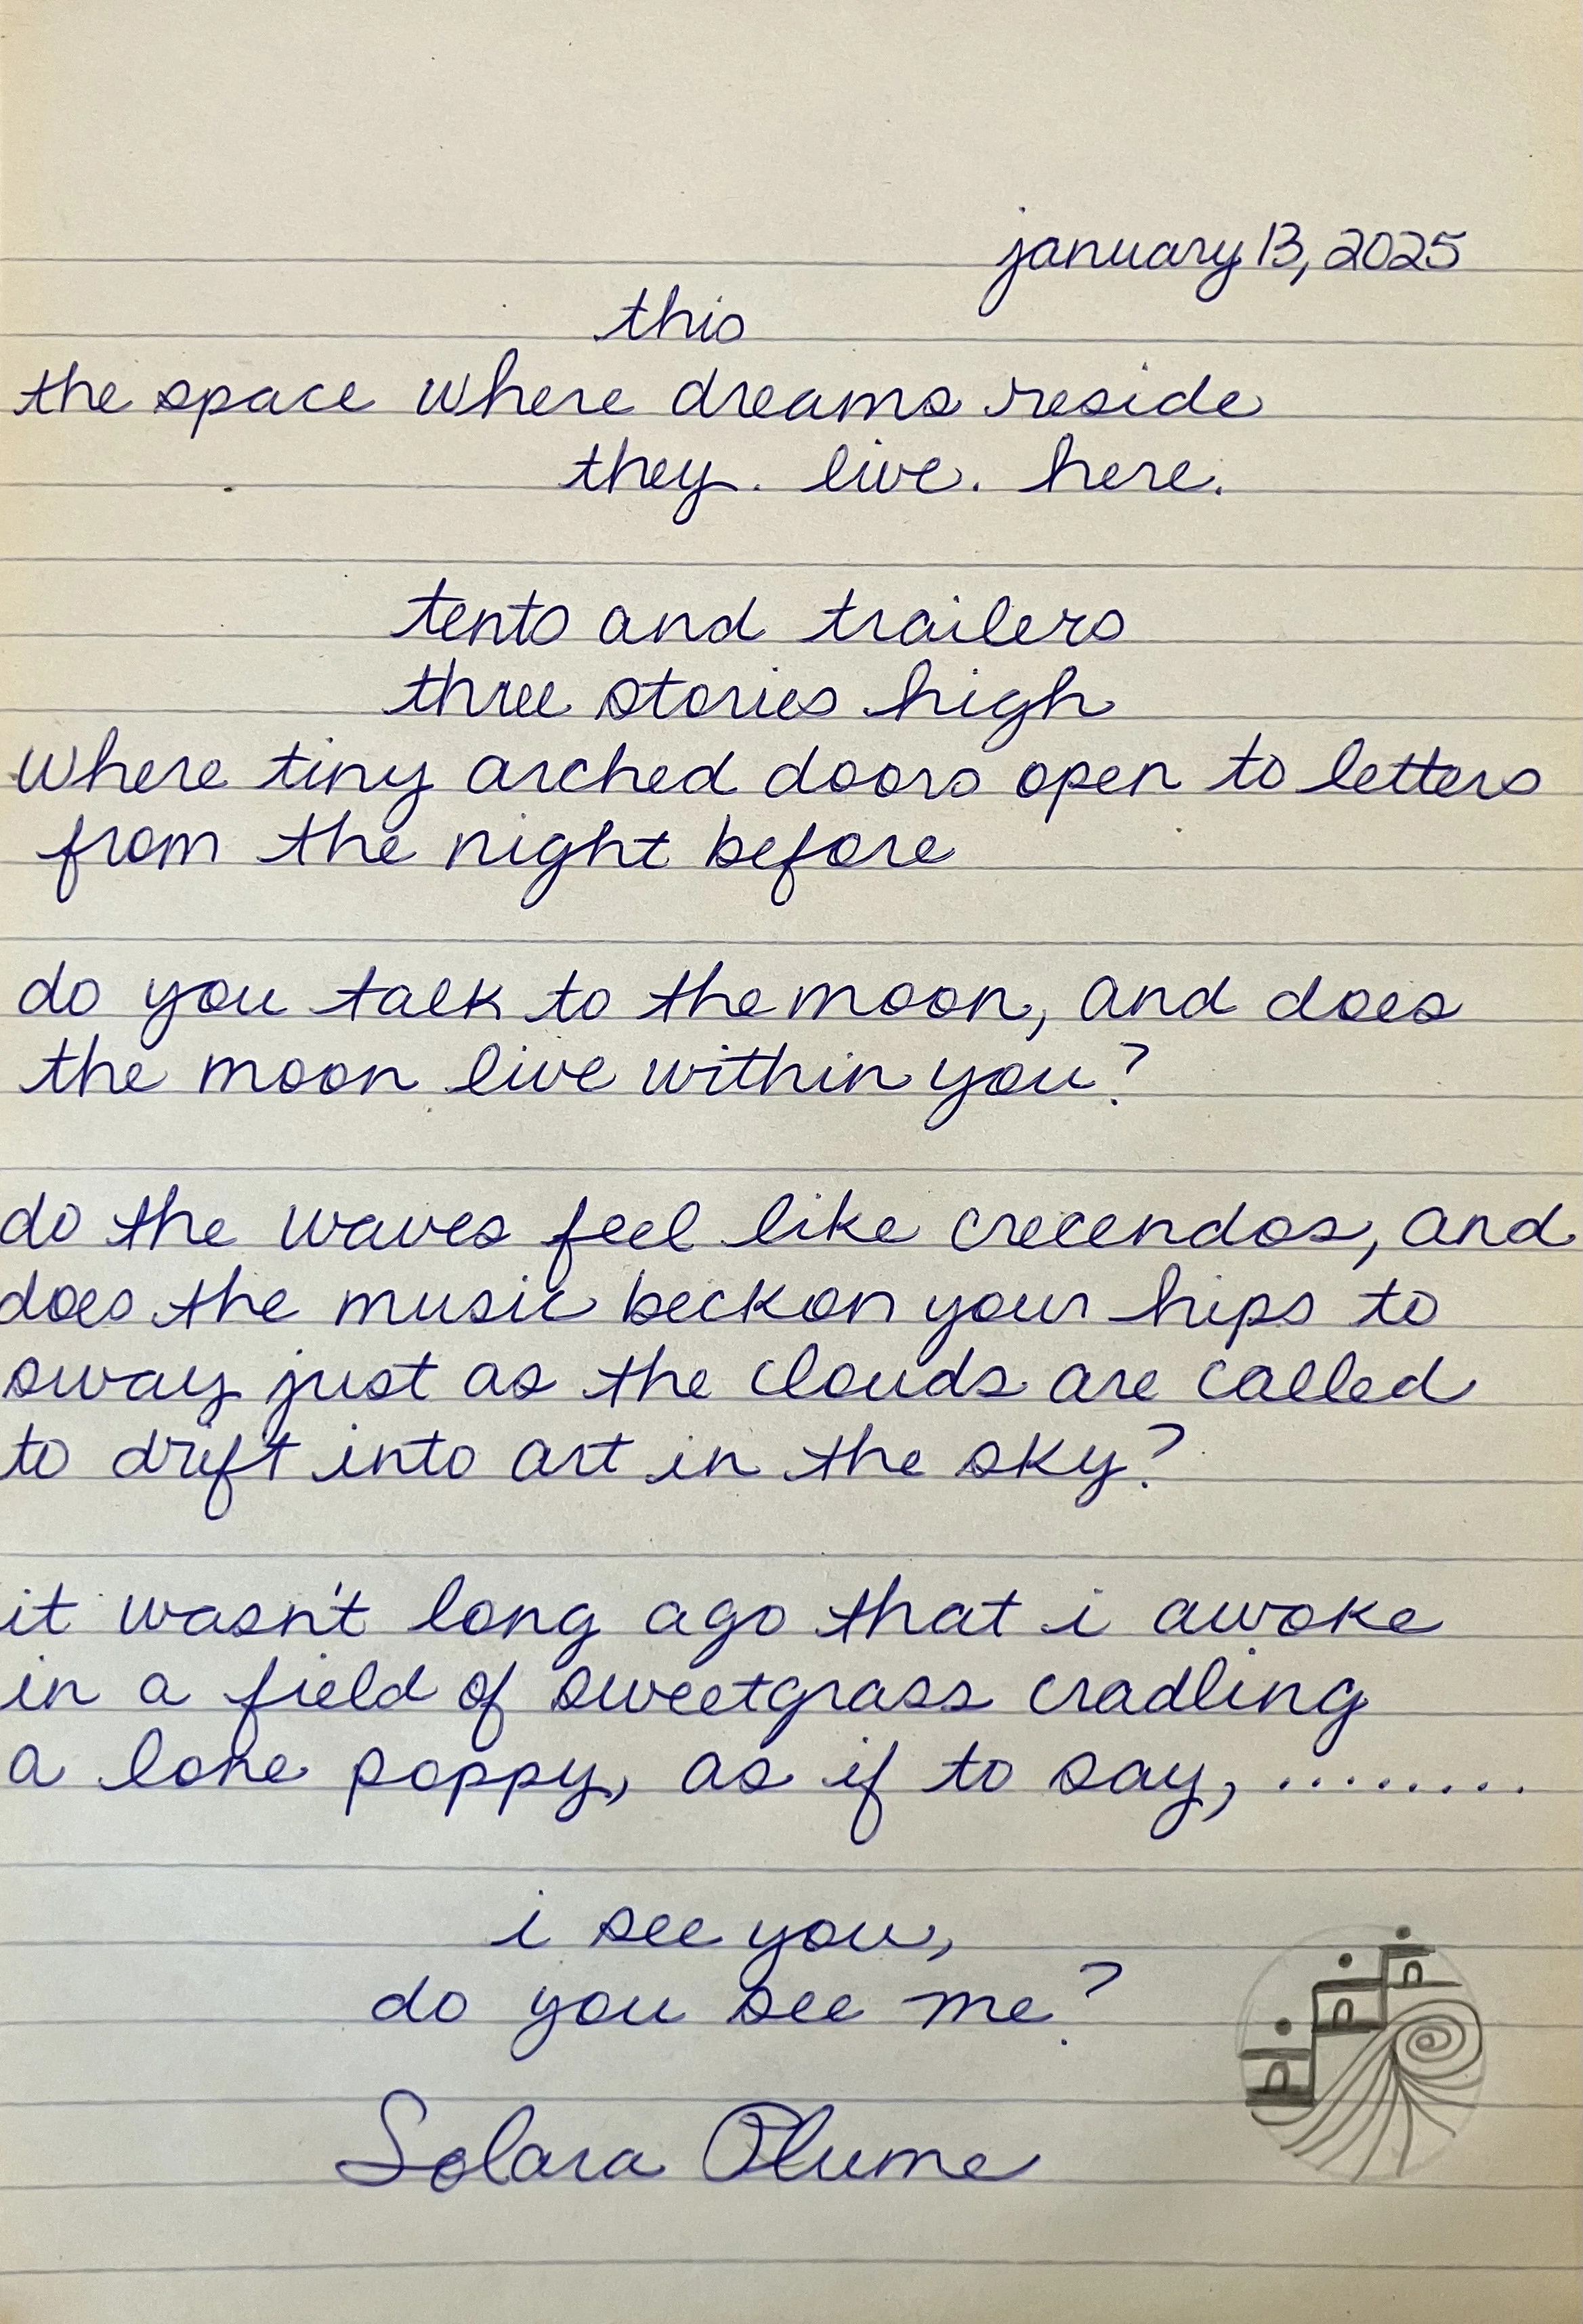 january 13, 2025
this
the space where dreams reside
they. live. here.
tents and trailers
three stories high
where tiny arched doors open to letters
from the night before
do you talk to the moon, and does
the moon live within you?
do the waves feel like crecendos, and
does the music beckon your hips to
sway just as the clouds are called
to drift into art in the sky?
it wasn't long ago that i awoke
in a field of sweetgrass cradling
a lone poppy, as if to say, ........
i see you,
do you see me?
Solara Plume